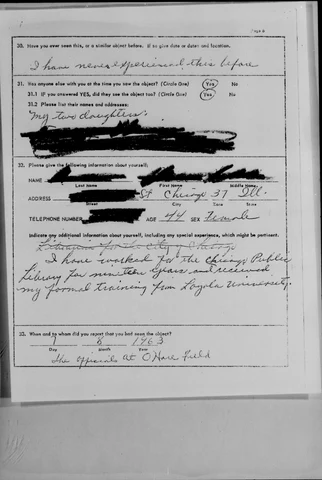 Page 6
30. Have you ever seen this, or a similar object before. If so give date or dates and location.
I have never experienced this before
31. Was anyone else with you at the time you saw the object? (Circle One) Yes No
31.1 If you answered YES, did they see the object too? (Circle One) Yes No
31.2 Please list their names and addresses:
My two daughters.
32. Please give the following information about yourself:
NAME
Last Name First Name Middle Name
ADDRESS St Chicago 37 Ill.
Street City Zone State
TELEPHONE NUMBER AGE 44 SEX Female
Indicate any additional information about yourself, including any special experience, which might be pertinent.
Librarian for the City of Chicago
I have worked for the Chicago Public
Library for nineteen years and received
my formal training from Loyola University.
33. When and to whom did you report that you had seen the object?
7 8 1963
Day Month Year
The officials at O'Hare Field